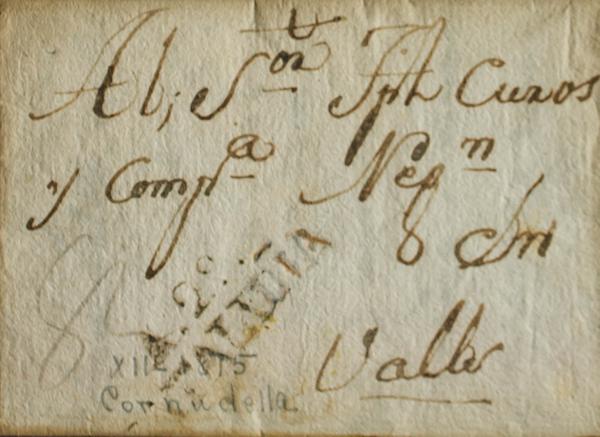 Al; Sor Jph Cuxos
y Compa Negn
8 Sn
Valls
XII-1815
Cornudella